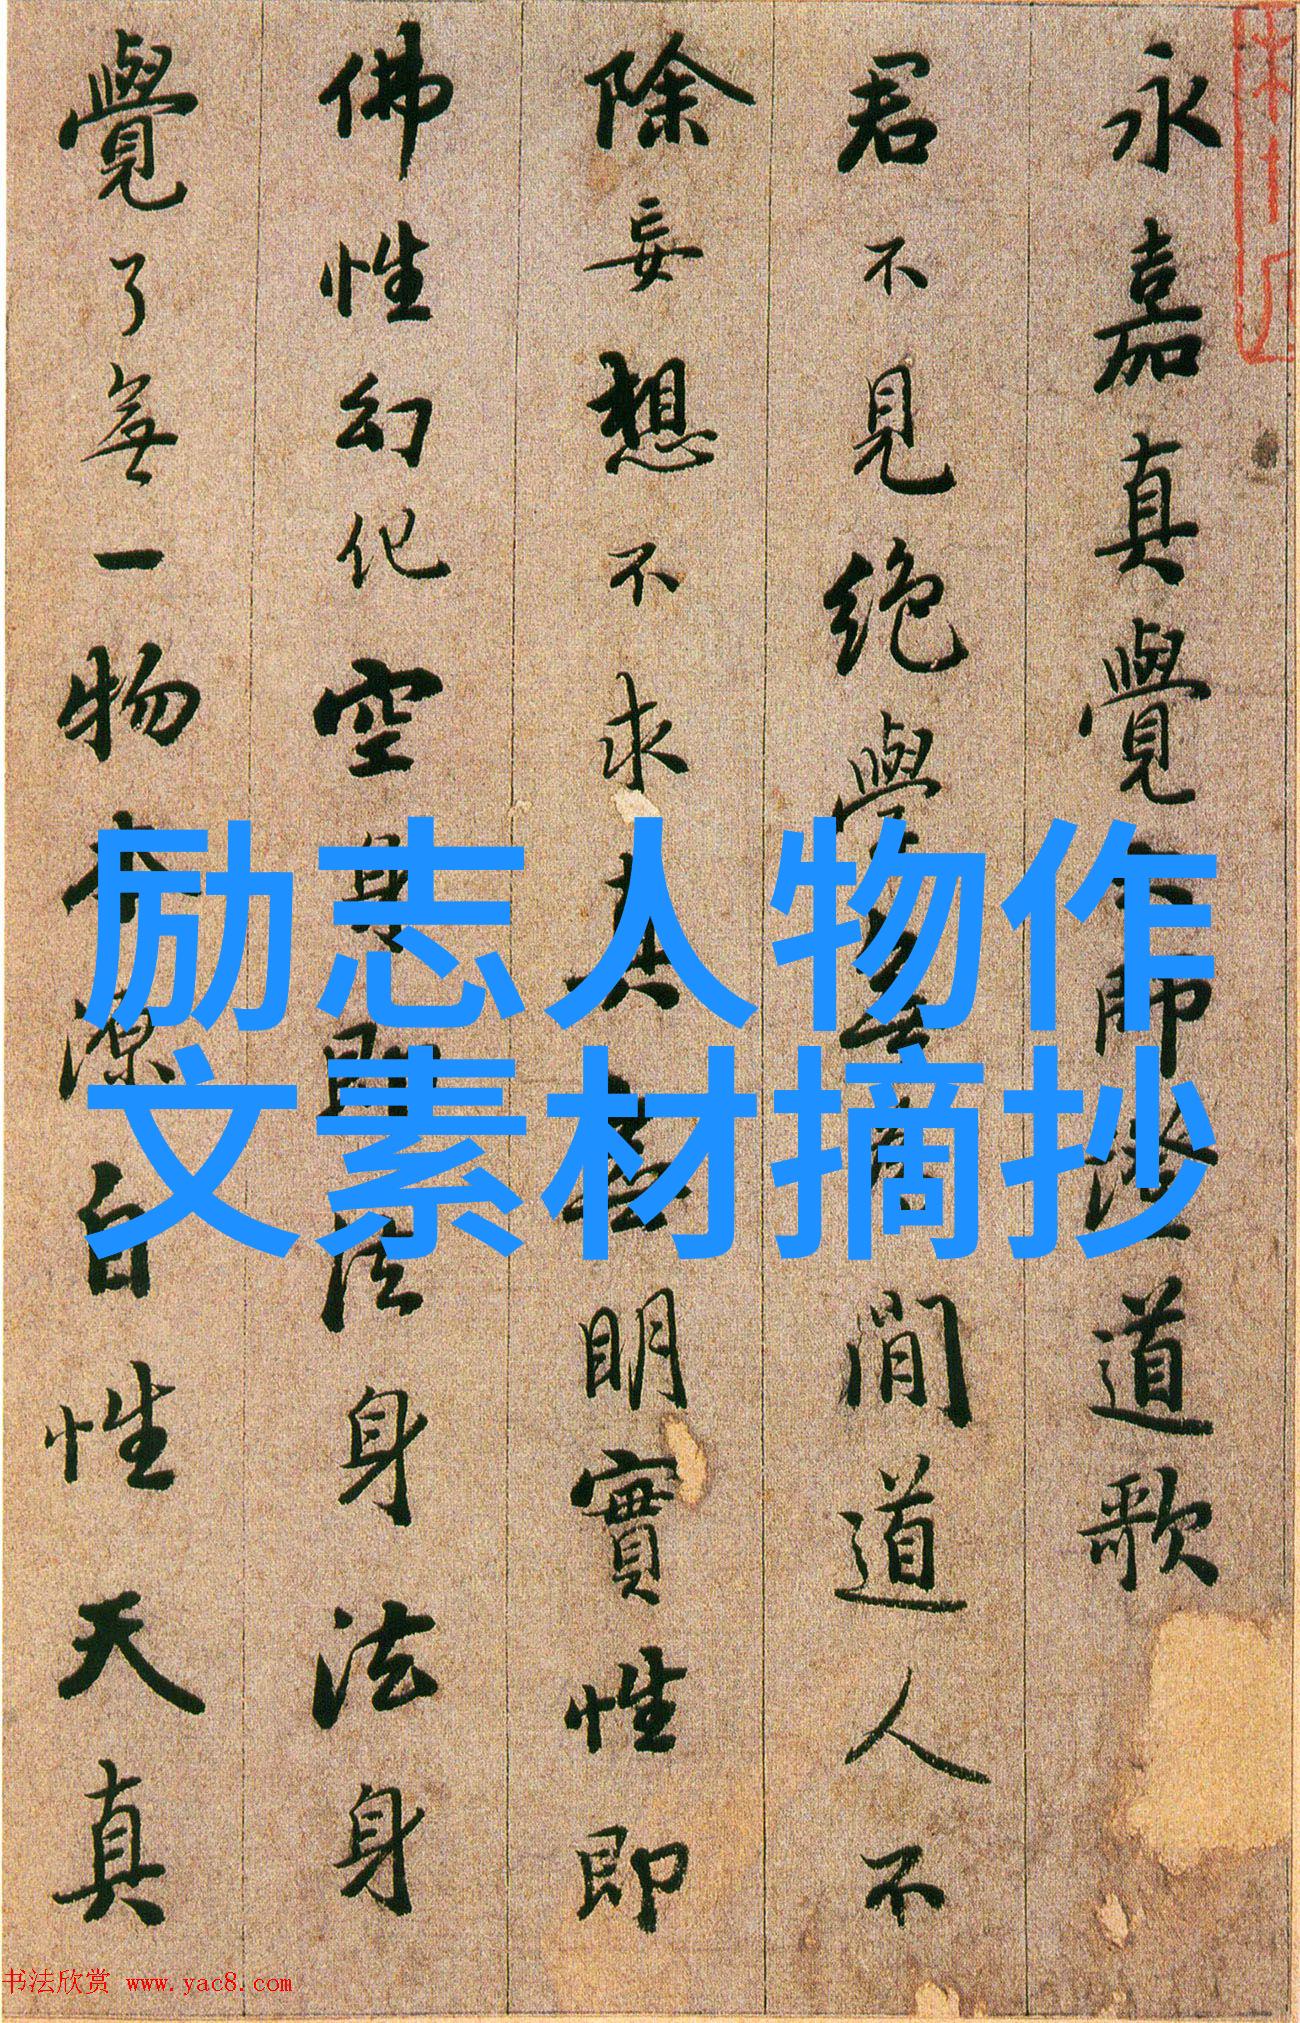 永嘉真覺大師證道歌
君不見絕學無為閒道人不
除妄想不求真無明實性即
佛性幻化空身即法身法身
覺了無一物本源自性天真
励志人物作
文素材摘抄
书法欣赏 www.yac8.com